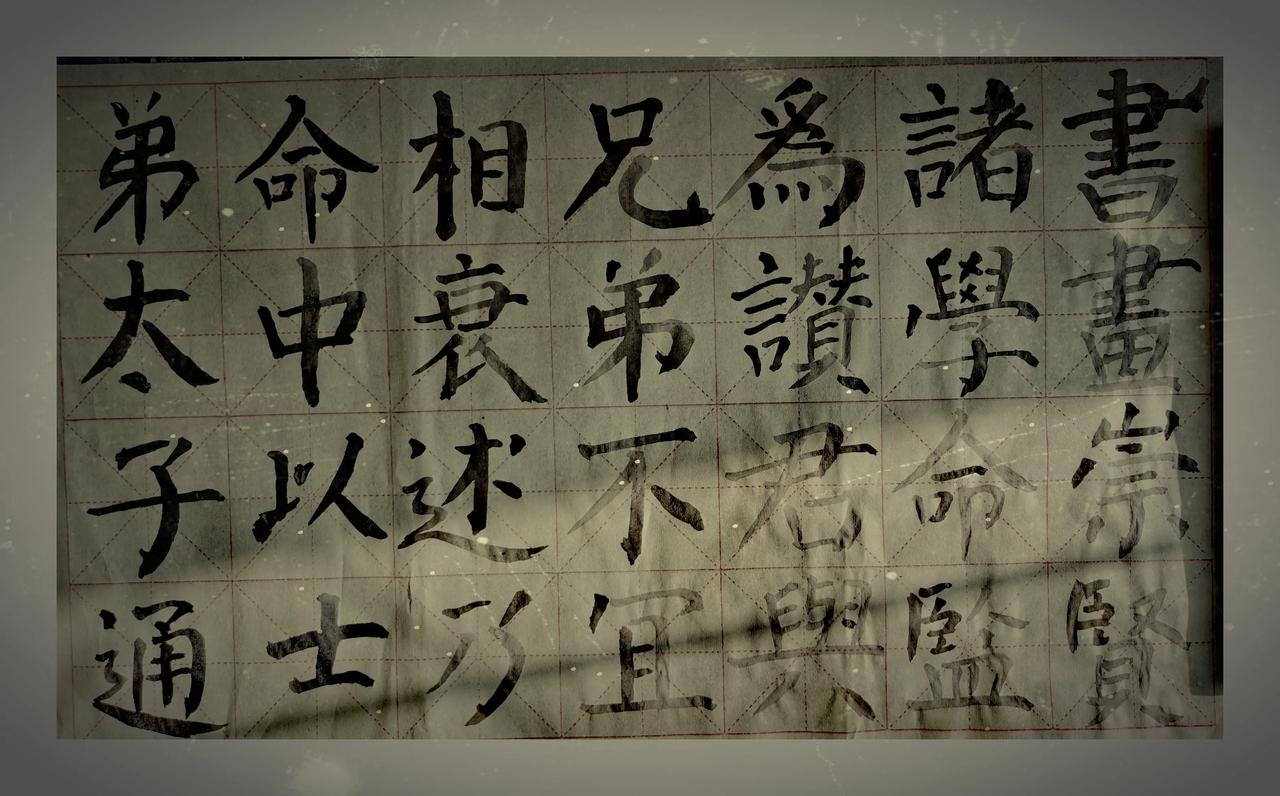 書畫崇賢
諸學命監
爲讃君與
兄弟不宜
相衰述乃
命中以士
弟太子通